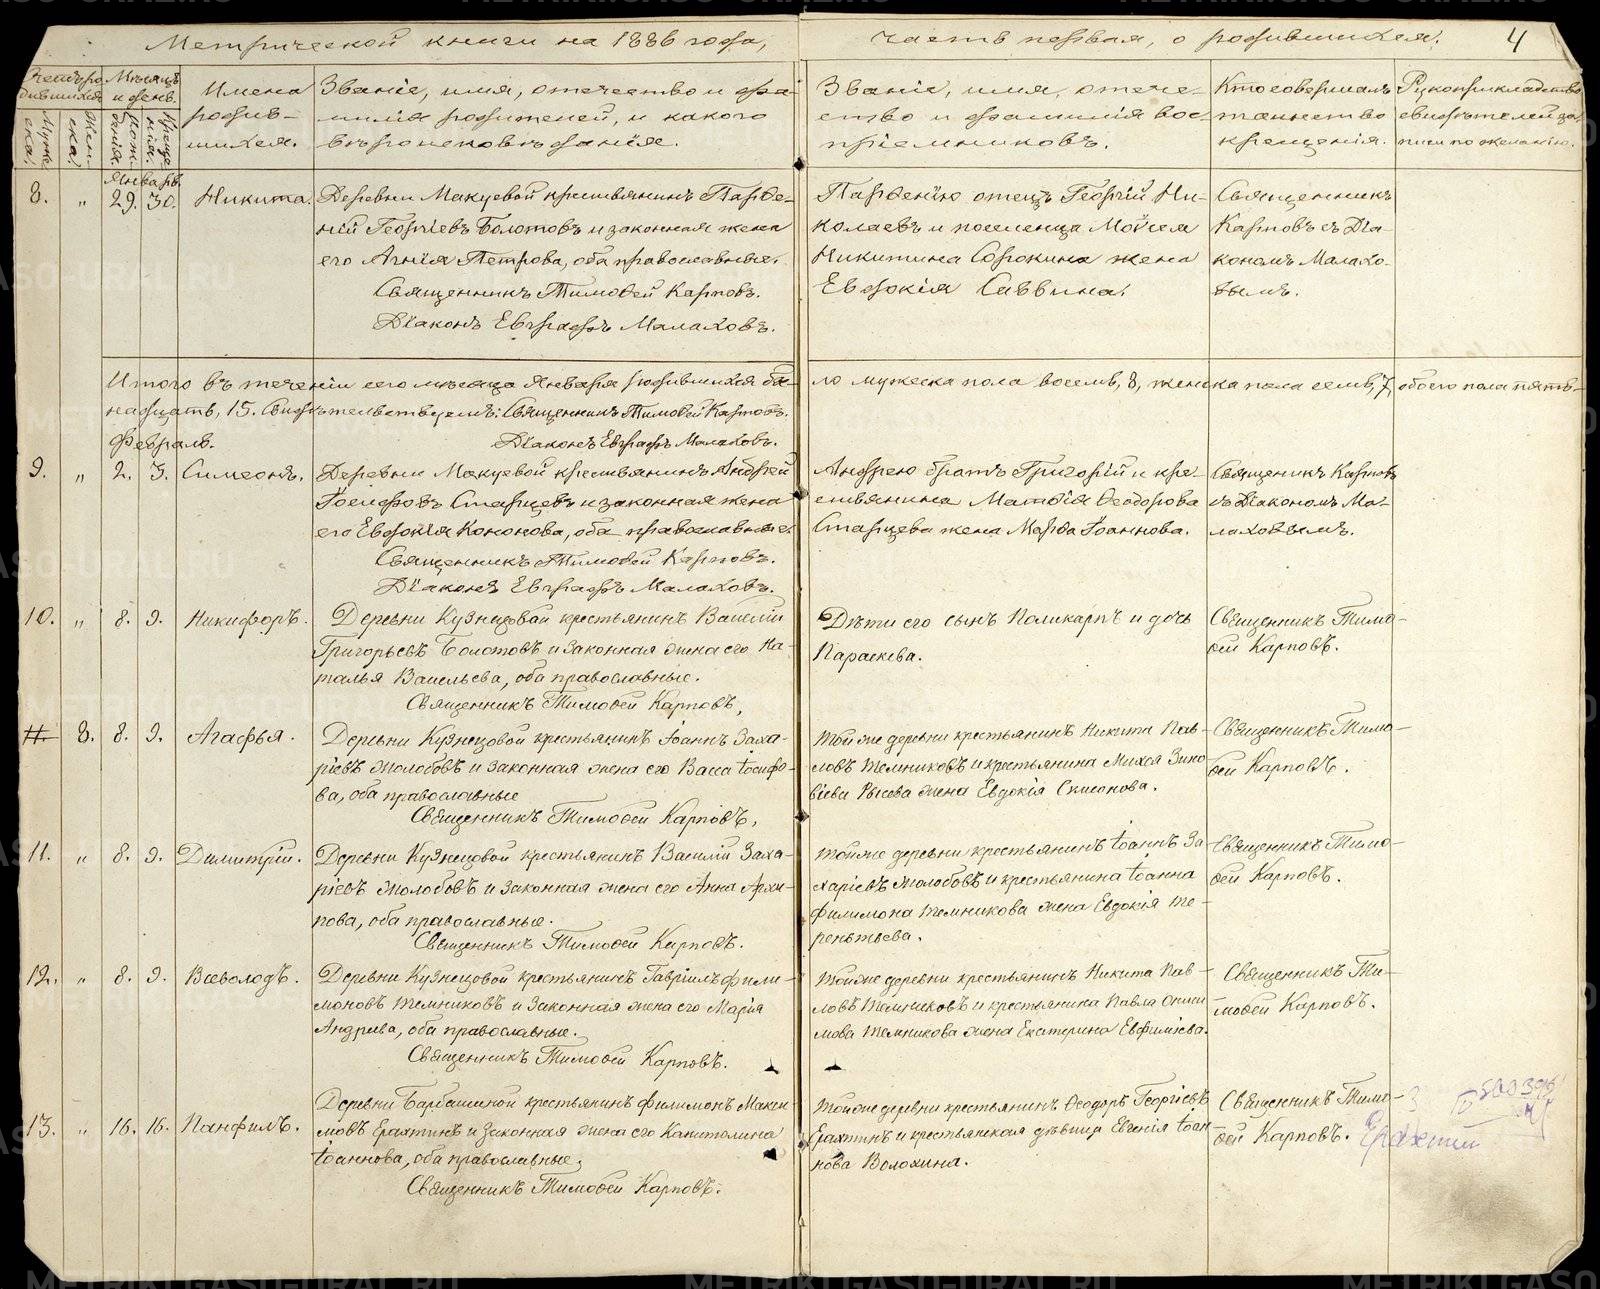 Метрической книги на 1886 года,
часть первая, о родившихся.
4
Счетъ ро
дившихся
Мужеска.
Женска.
Мѣсяцъ
и день.
рожденія.
крещенія.
Имена
родив-
шихся.
Званіе, имя, отечество и фа-
милія родителей, и какого
вѣроисповѣданія.
Званіе, имя, отече-
ство и фамилія вос-
пріемниковъ.
Кто совершалъ
таинство
крещенія.
Рукоприкладство
свидѣтелей за
писи по желанію.
Январь.
8. „ 29. 30. Никита.
Деревни Макуевой крестьянинъ Парѳе-
ній Георгіевъ Болотовъ и законная жена
его Агнія Петрова, оба православные.
Священникъ Тимоѳей Карповъ.
Діаконъ Евграфъ Малаховъ.
Парѳенію отецъ Георгій Ни-
колаевъ и поселенца Моѵсея
Никитина Сорокина жена
Евдокія Саввина.
Священникъ
Карповъ съ Діа-
кономъ Малахо-
вымъ.
Итого въ теченіи сего мѣсяца Января родившихся бы-
ло мужеска пола восемь, 8, женска пола семь, 7, обоего пола пят-
надцать, 15. Свидѣтельствуемъ: Священникъ Тимоѳей Карповъ.
Февраль.
Діаконъ Евграфъ Малаховъ.
9. „ 2. 3. Симеонъ.
Деревни Макуевой крестьянинъ Андрей
Іосифовъ Старцевъ и законная жена
его Евдокія Кононова, оба православные.
Священникъ Тимоѳей Карповъ.
Діаконъ Евграфъ Малаховъ.
Андрею братъ Григорій и кре-
стьянина Матѳія Ѳеодорова
Старцева жена Марѳа Іоаннова.
Священникъ Карповъ
съ Діакономъ Ма-
лаховымъ.
10. „ 8. 9. Никифоръ.
Деревни Кузнецовой крестьянинъ Василій
Григорьевъ Болотовъ и законная жена его На-
талья Васильева, оба православные.
Священникъ Тимоѳей Карповъ,
Дѣти его сынъ Поликарпъ и дочь
Параскева.
Священникъ Тимо-
ѳей Карповъ.
11. 8. 8. 9. Агафья.
Деревни Кузнецовой крестьянинъ Іоаннъ Заха-
ріевъ Молобовъ и законная жена его Васса Іосифо-
ва, оба православные
Священникъ Тимоѳей Карповъ,
Той же деревни крестьянинъ Никита Пав-
ловъ Темниковъ и крестьянина Михея Зино
віева Рысева жена Евдокія Симеонова.
Священникъ Тимо-
ѳей Карповъ.
11. „ 8. 9. Димитрій.
Деревни Кузнецовой крестьянинъ Василій Заха-
ріевъ Молобовъ и законная жена его Анна Архи-
пова, оба православные.
Священникъ Тимоѳей Карповъ.
Той же деревни крестьянинъ Іоаннъ За
харіевъ Молобовъ и крестьянина Іоанна
Филимона Темникова жена Евдокія Те-
рентьева.
Священникъ Тимо-
ѳей Карповъ.
12. „ 8. 9. Всеволодъ.
Деревни Кузнецовой крестьянинъ Гавріилъ Фили-
моновъ Темниковъ и законная жена его Марія
Андреева, оба православные.
Священникъ Тимоѳей Карповъ.
Той же деревни крестьянинъ Никита Пав-
ловъ Темниковъ и крестьянина Павла Ониси
мова Темникова жена Екатерина Евфиміева.
Священникъ Ти-
моѳей Карповъ.
13. „ 16. 16. Панфилъ.
Деревни Барбашиной крестьянинъ Филимонъ Макси-
мовъ Ерахтинъ и законная жена его Капитолина
Іоаннова, оба православные,
Священникъ Тимоѳей Карповъ.
Той же деревни крестьянинъ Ѳеодоръ Георгіевъ
Ерахтинъ и крестьянская дѣвица Евгенія Іоан-
нова Волохина.
Священникъ Тимо-
ѳей Карповъ.
METRIKI.GASO-URAL.RU